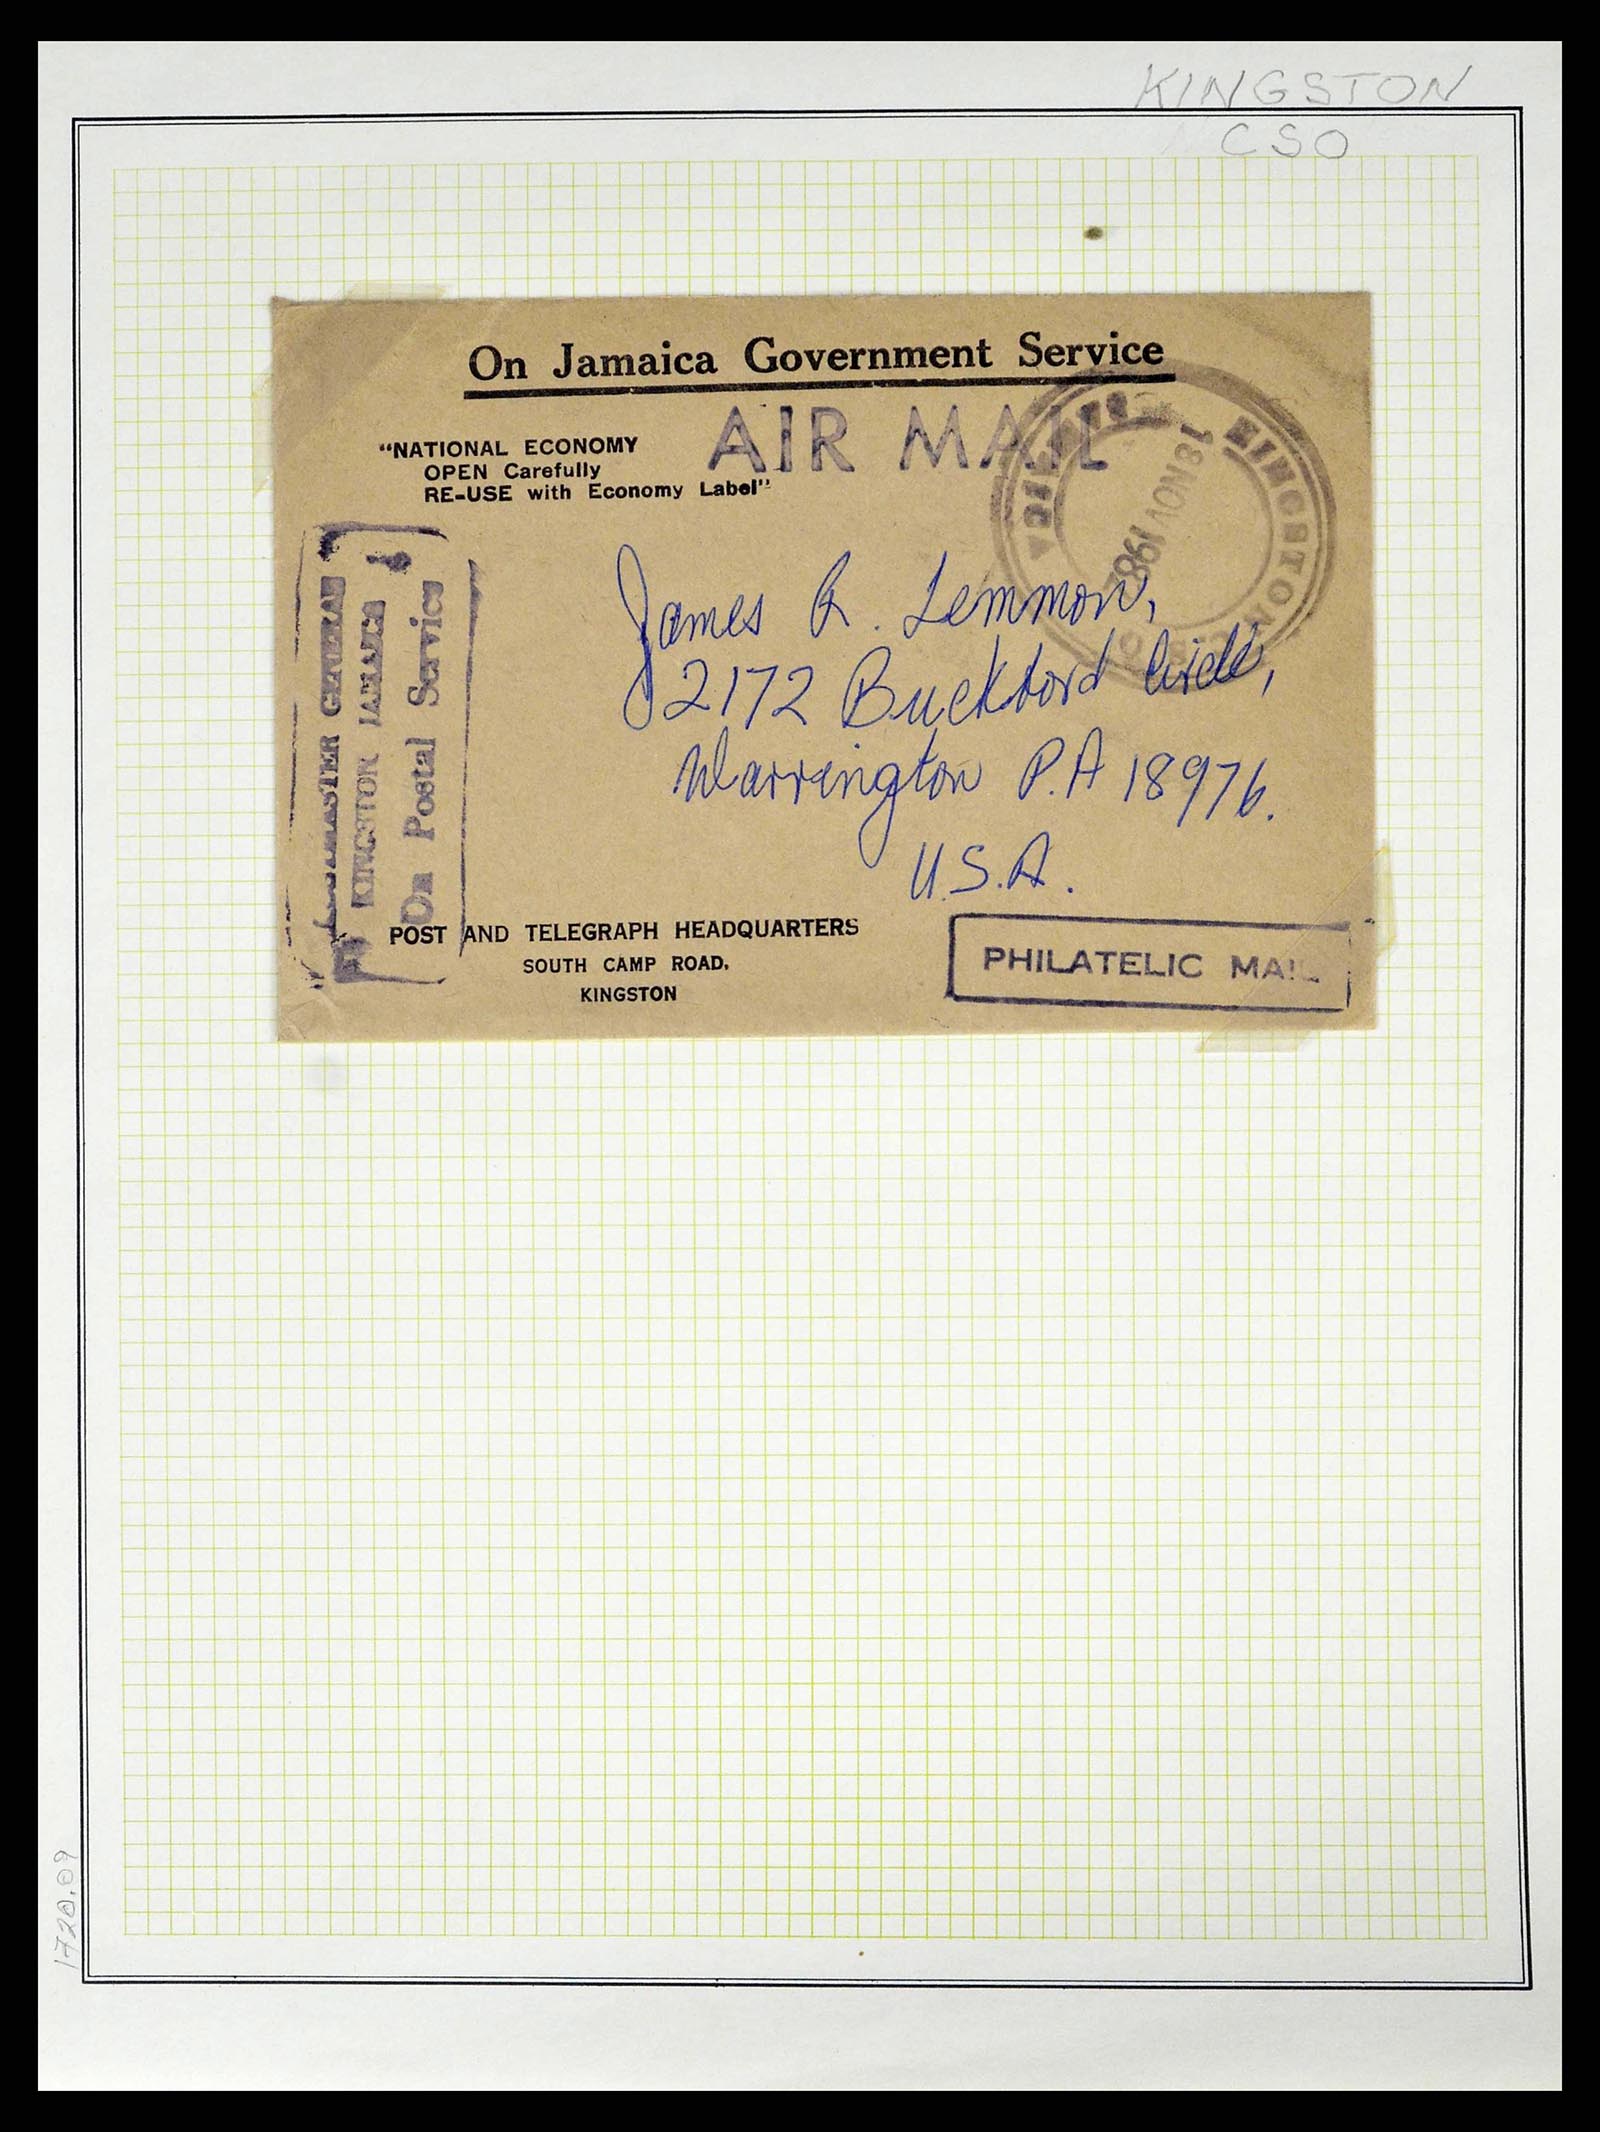 KINGSTON
CSO
On Jamaica Government Service
AIR MAIL
"NATIONAL ECONOMY
OPEN Carefully
RE-USE with Economy Label"
KINGSTON
18 NOV 198
GENERAL
KINGSTON JAMAICA
On Postal Service
James R. Lemmon,
2172 Buckford Circle,
Warrington P.A 18976.
U.S.A.
POST AND TELEGRAPH HEADQUARTERS
SOUTH CAMP ROAD.
KINGSTON
PHILATELIC MAIL
1720.09